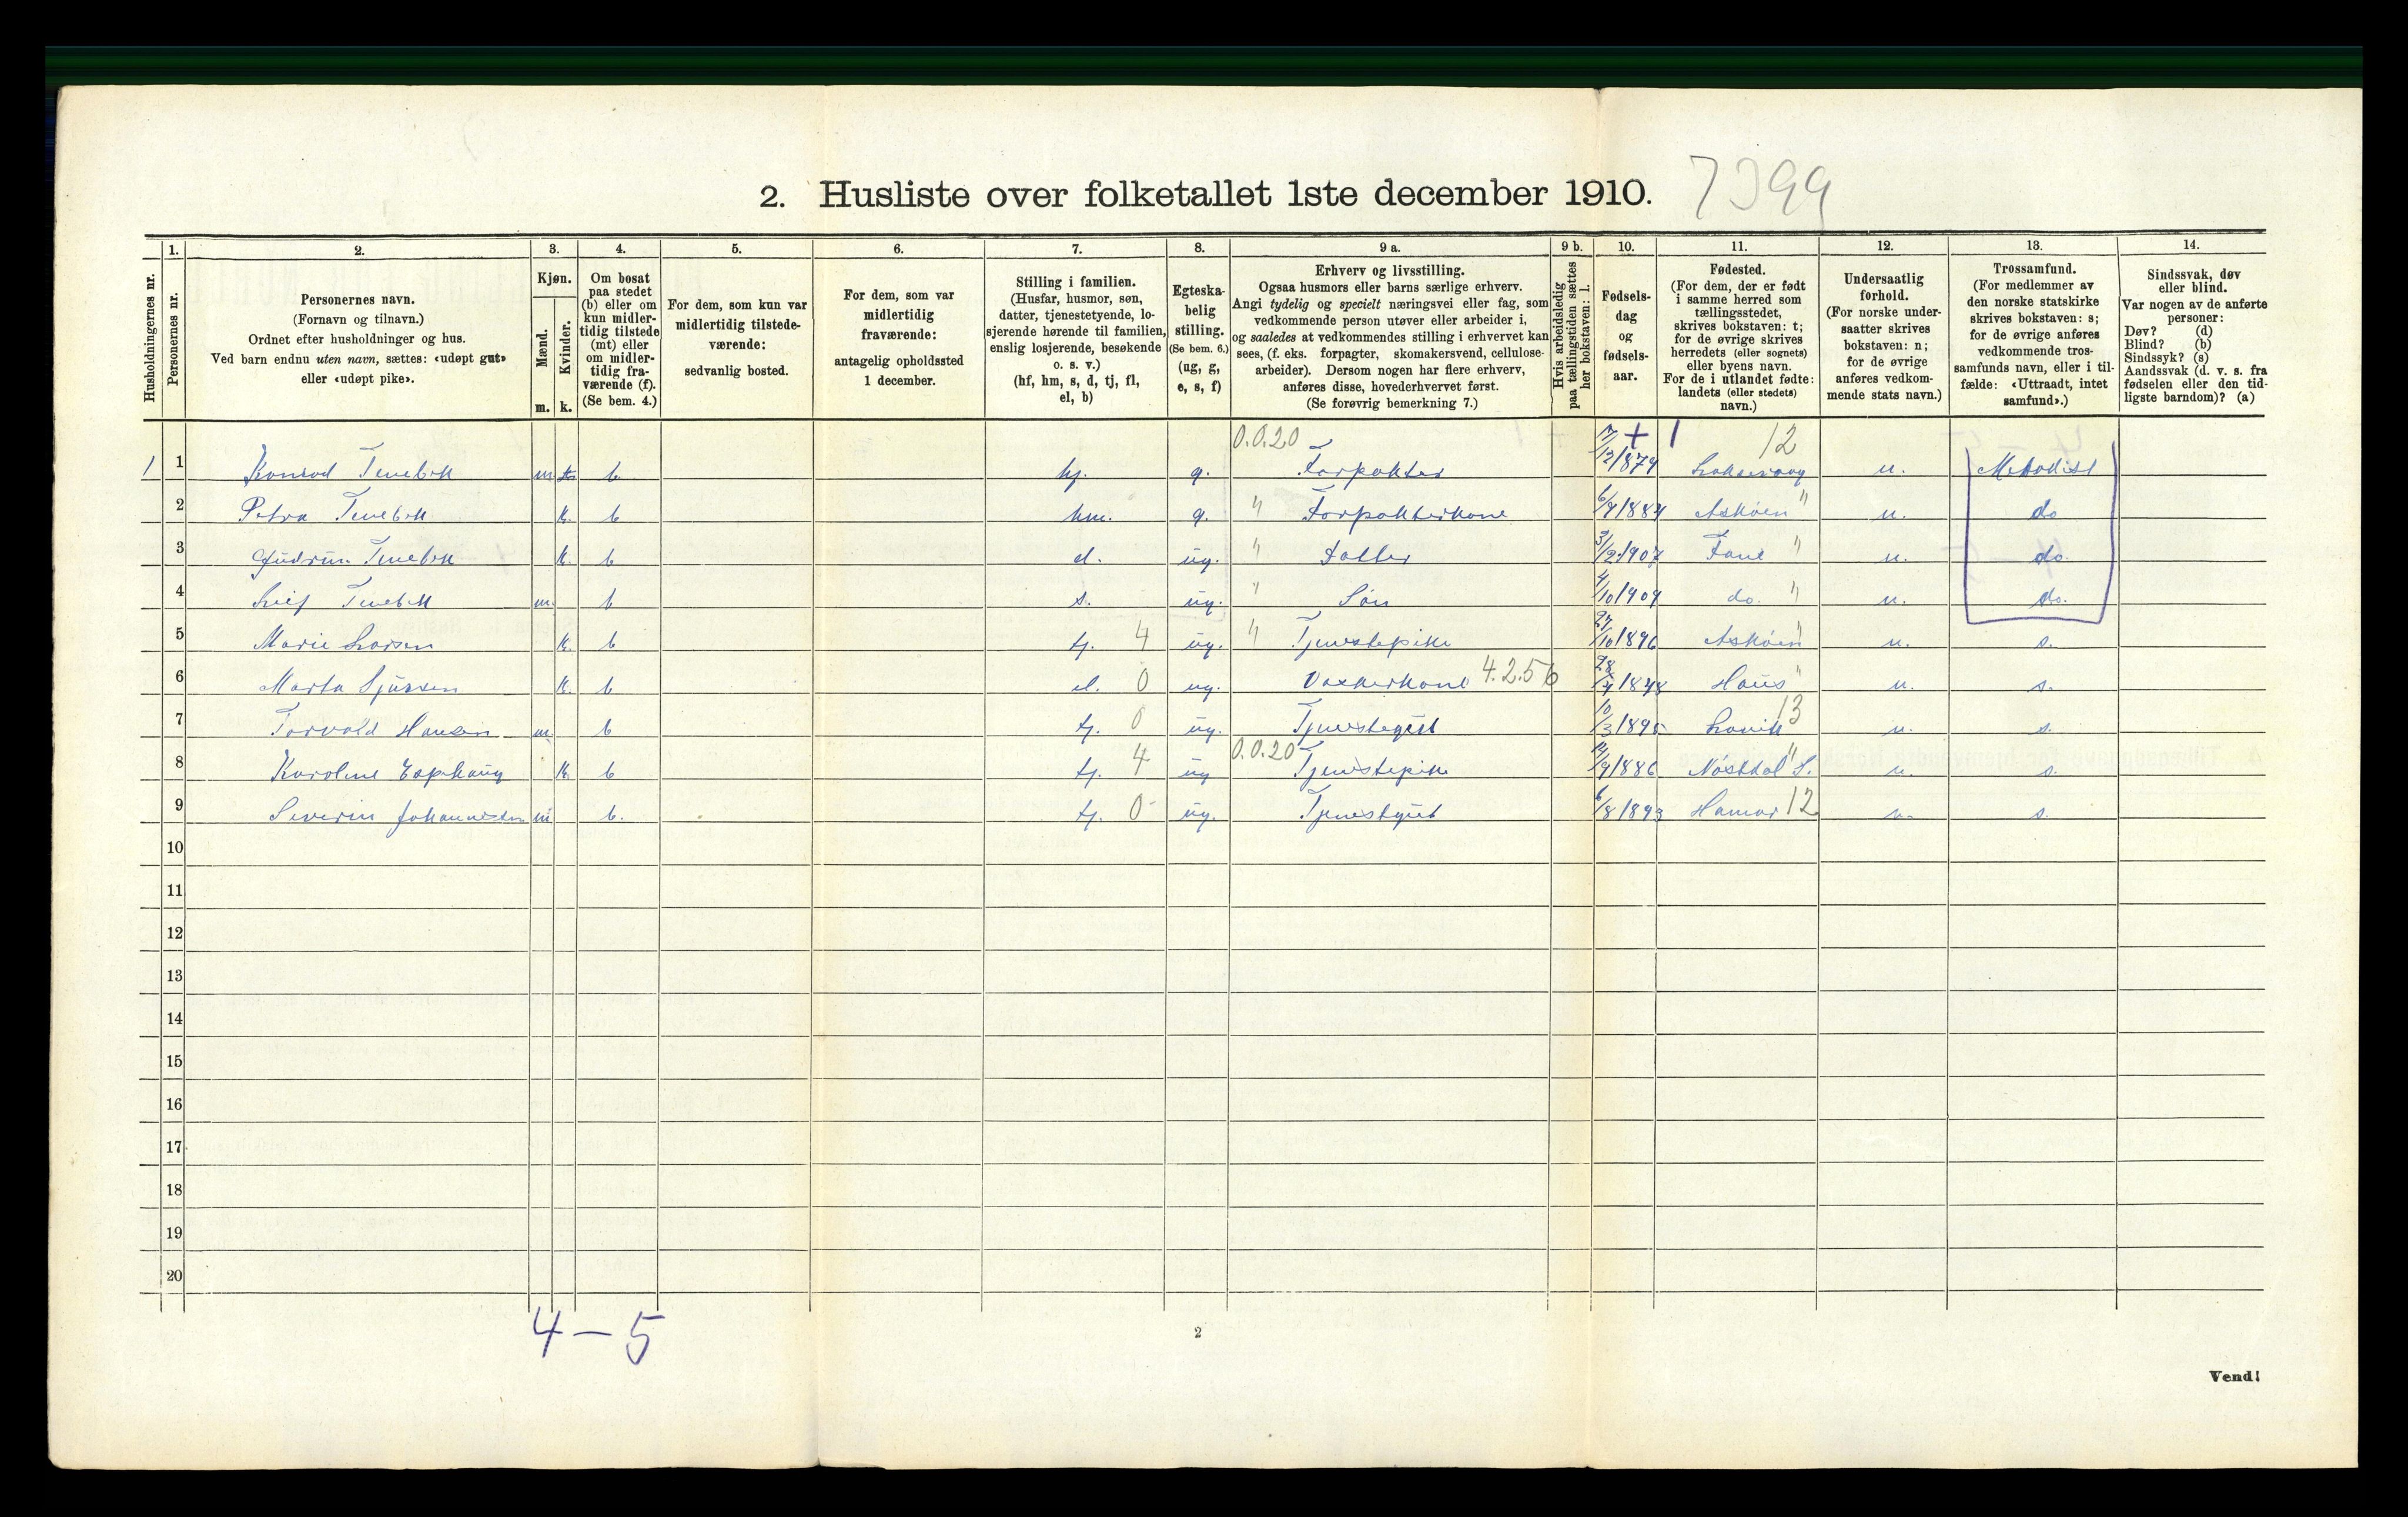 2. Husliste over folketallet 1ste december 1910. 7399
Husholdningernes nr.
1. Personernes nr.
2. Personernes navn. (Fornavn og tilnavn.) Ordnet efter husholdninger og hus. Ved barn endnu uten navn, sættes: «udøpt gut» eller «udøpt pike».
3. Kjøn. Mænd. m. Kvinder. k.
4. Om bosat paa stedet (b) eller om kun midlertidig tilstede (mt) eller om midlertidig fraværende (f). (Se bem. 4.)
5. For dem, som kun var midlertidig tilstedeværende: sedvanlig bosted.
6. For dem, som var midlertidig fraværende: antagelig opholdssted 1 december.
7. Stilling i familien. (Husfar, husmor, søn, datter, tjenestetyende, losjerende hørende til familien, enslig losjerende, besøkende o. s. v.) (hf, hm, s, d, tj, fl, el, b)
8. Egteskabelig stilling. (Se bem. 6.) (ug, g, e, s, f)
9 a. Erhverv og livsstilling. Ogsaa husmors eller barns særlige erhverv. Angi tydelig og specielt næringsvei eller fag, som vedkommende person utøver eller arbeider i, og saaledes at vedkommendes stilling i erhvervet kan sees, (f. eks. forpagter, skomakersvend, cellulosearbeider). Dersom nogen har flere erhverv, anføres disse, hovederhvervet først. (Se forøvrig bemerkning 7.)
9 b. Hvis arbeidsledig paa tællingstiden sættes her bokstaven: l.
10. Fødselsdag og fødselsaar.
11. Fødested. (For dem, der er født i samme herred som tællingsstedet, skrives bokstaven: t; for de øvrige skrives herredets (eller sognets) eller byens navn. For de i utlandet fødte: landets (eller stedets) navn.)
12. Undersaatlig forhold. (For norske undersaatter skrives bokstaven: n; for de øvrige anføres vedkommende stats navn.)
13. Trossamfund. (For medlemmer av den norske statskirke skrives bokstaven: s; for de øvrige anføres vedkommende trossamfunds navn, eller i tilfælde: «Uttraadt, intet samfund».)
14. Sindssvak, døv eller blind. Var nogen av de anførte personer: Døv? (d) Blind? (b) Sindssyk? (s) Aandssvak (d. v. s. fra fødselen eller den tidligste barndom)? (a)
0.0.20 + 1 12
1 1 Konrad m b hf. g. Forpakter 7/12 1879 Laksevaag n. Methodist
2 Petra k. b hm. g. " Forpakterkone 6/9 1884 Askøen " n. do
3 Gudrun k. b d. ug. " Datter 3/2 1907 Fane " n. do.
4 Leif m. b s. ug. " Søn 4/10 1909 do. " n. do.
5 Marie Larsen k. b tj. 4 ug. " Tjenstepike 27/10 1896 Askøen " n. s.
6 Marta Sjursen k. b el. 0 ug. Vaskerkone 4.2.56 28/4 1848 Haus " n. s.
7 Torvald Hansen m. b tj. 0 ug. Tjenstegut 10/3 1895 13 n. s.
8 Karoline k. b tj. 4 ug 0.0.20 Tjenstepike /9 1886 " n. s.
9 Severin Johannesen m b. tj. 0 ug. Tjenstgut 6/8 1893 Hamar 12 n. s.
10
11
12
13
14
15
16
17
18
19
20
4 — 5
2
Vend!